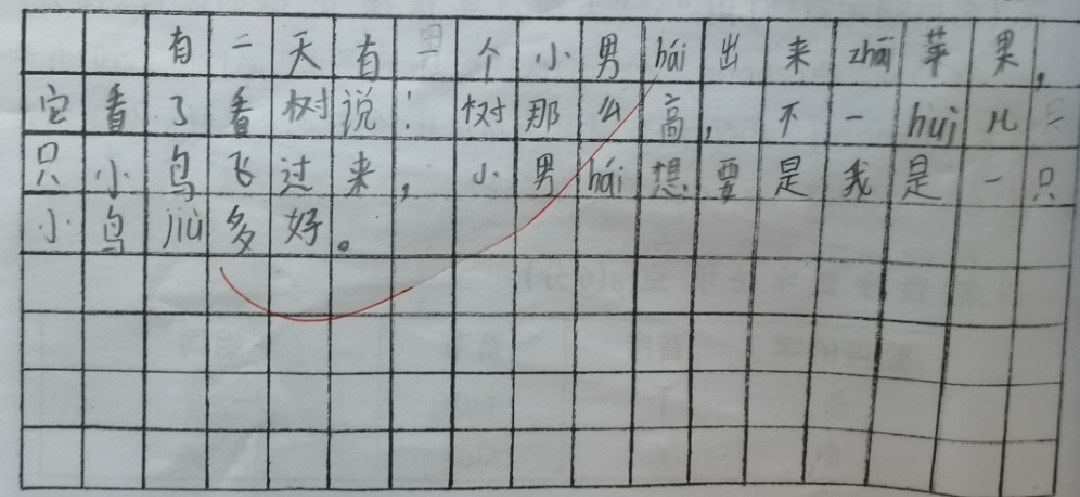 有二天有一个小男hái出来zhāi苹果，
它看了看树说：树那么高，不一huì儿二
只小鸟飞过来，小男hái想要是我是一只
小鸟jiù多好。